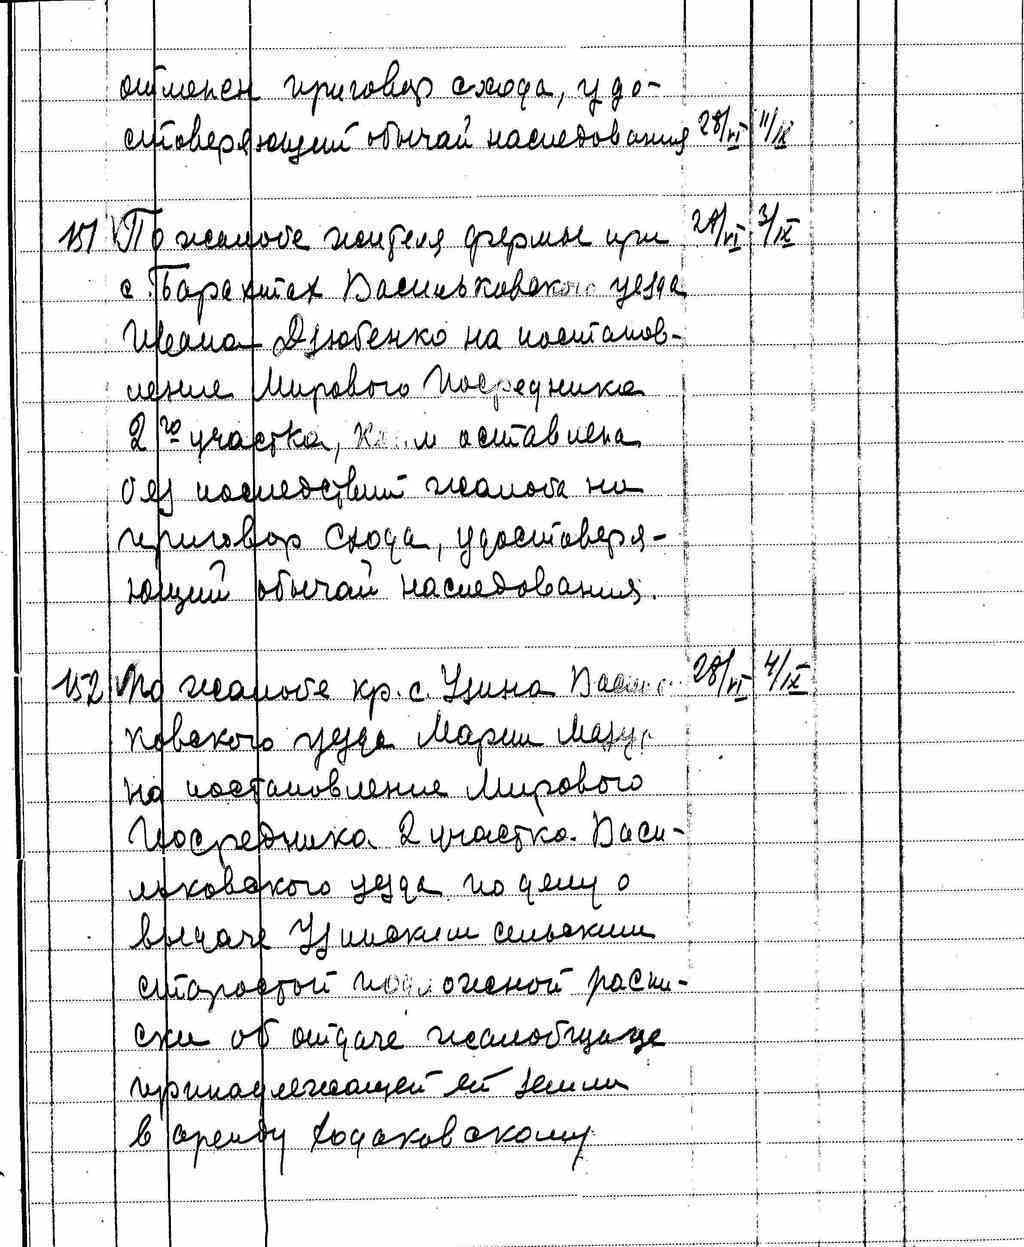 отменен приговор схода, удо-
стоверяющий обычай наследования 28/VI 11/IX
151 По жалобе жителя фермы при 27/VI 3/IX
с. Барахтах Васильковского уезда
Ивана Дзюбенко на постанов-
ление Мирового Посредника
2го участка, коим оставлена
без последствий жалоба на
приговор Схода, удостоверя-
ющий обычай наследования.
152 По жалобе кр. с. Узина Василь- 28/VI 4/IX
ковского уезда Марии
на постановление Мирового
Посредника 2 участка Васи-
льковского уезда по делу о
выдаче Узинским сельским
старостой подложной распи-
ски об отдаче жалобщице
принадлежащей ей земли
в аренду Ходаковскому